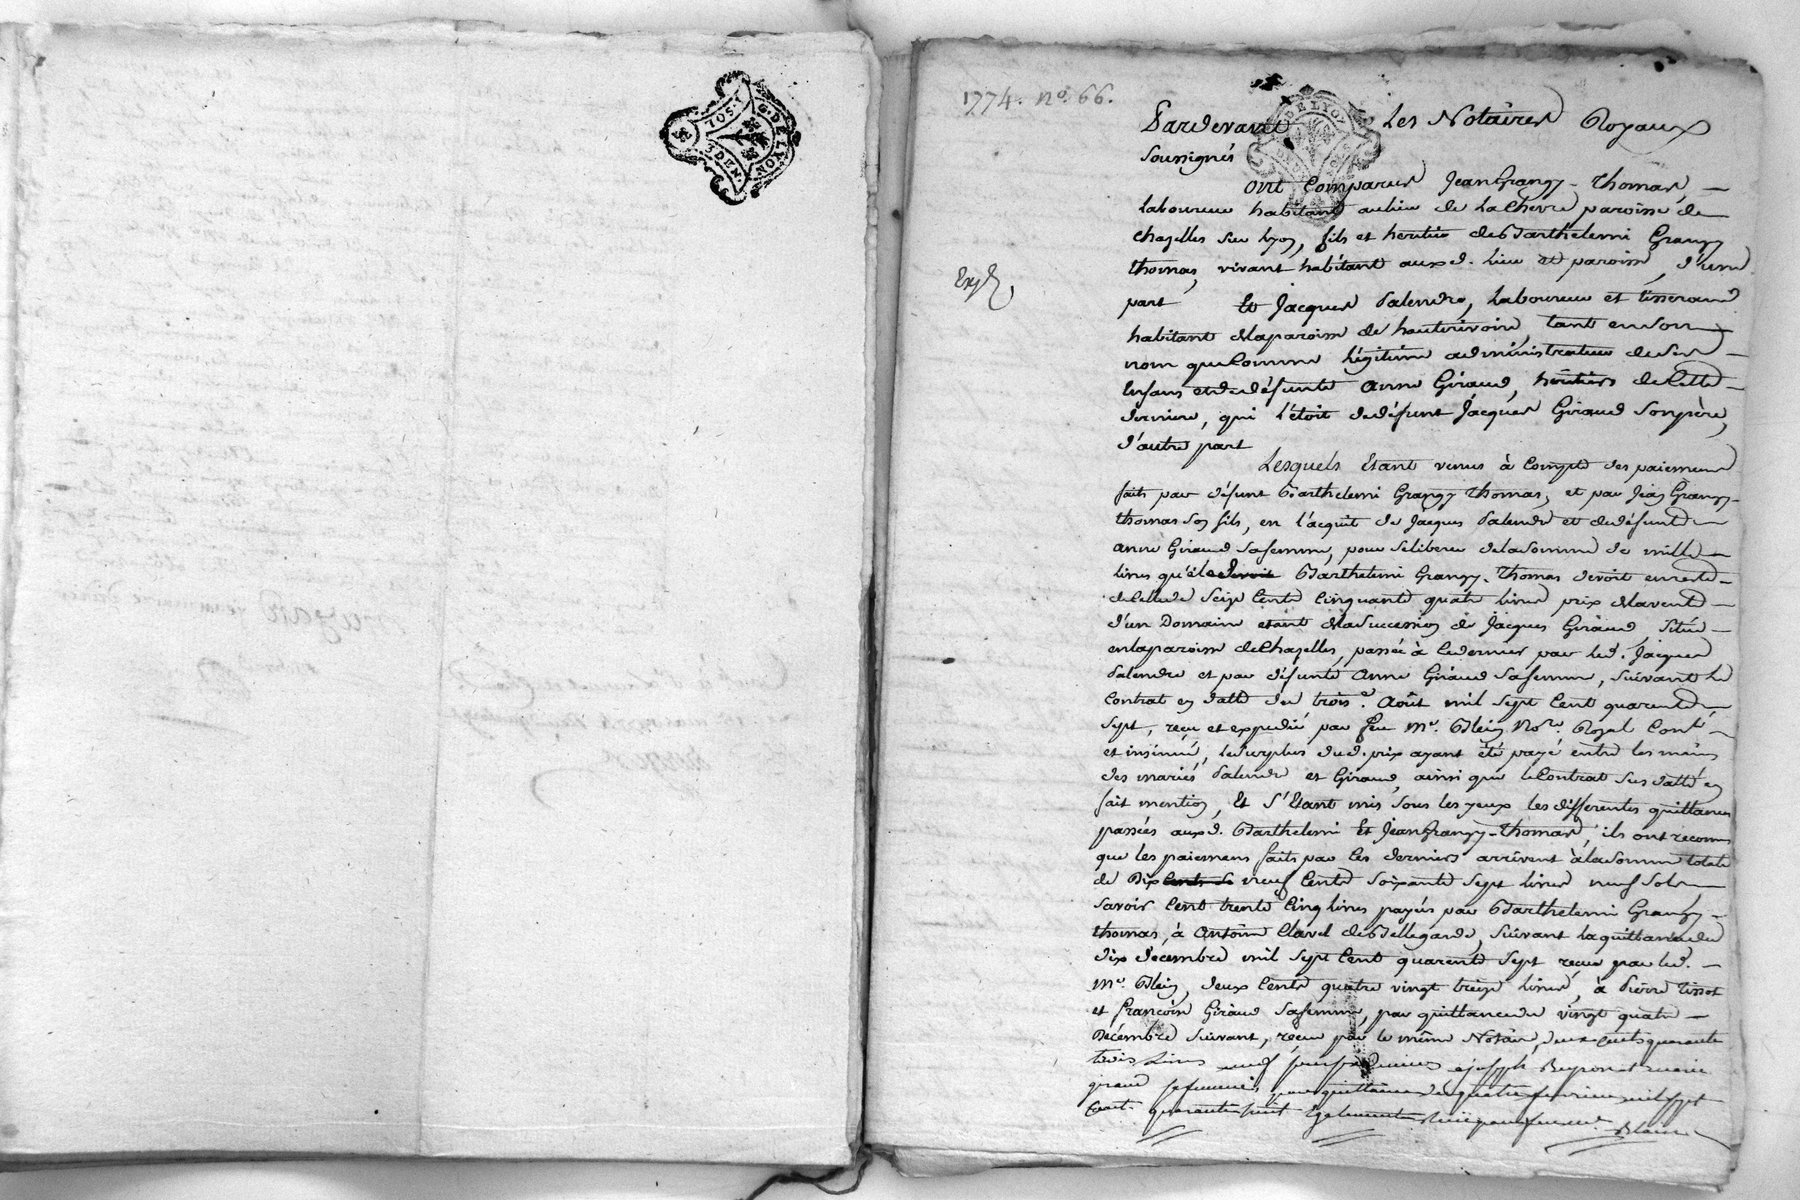 G. DE LYON
1 SOL
3 DEN.
1774. no. 66.
Pardevant Les Notaires Royaux
Soussignés
DE LYON
Ont Comparus Jean Grangy-Thomas,
Laboureur habitant au lieu de La Chevre paroisse de
Chazelles sur Lyon, fils et heritier de Barthelemi Grangy
Thomas, vivant habitant auxd. lieu et paroisse, d'une
Exp.
part Et Jacques Palendre, Laboureur et tisserand
habitant de la paroisse de hauterivoire, tant en son
nom que Comme légitime administrateur de ses
Enfans et de défunte Anne Giraud, héritiers de Cette
derniere, qui l'étoit de défunt Jacques Giraud son père,
d'autre part
Lesquels Etant venus à Compte des paiemens
faits par défunt Barthelemi Grangy Thomas, et par Jean Grangy-
Thomas son fils, en l'acquit de Jacques Palendre et de défunte
Anne Giraud sa femme, pour se liberer de la somme de mille
livres que Barthelemi Grangy-Thomas devoit en reste
de Celle de Seize Cents Cinquante quatre livres prix de la vente
d'un Domaine étant de la Succession de Jacques Giraud, Situé
en la paroisse de Chazelles, passée à Ce dernier par led. Jacques
Palendre et par défunte Anne Giraud sa femme, suivant le
Contrat en datte du trois.e Août mil sept Cent quarante
sept, reçu et expedié par feu Me. Blein No.re Royal Cont.é
et insinué, le surplus dud. prix ayant été payé entre les mains
des mariés Palendre et Giraud, ainsi que le Contrat sus datté en
fait mention, Et S'Etant mis sous les yeux les differentes quittances
passées auxd. Barthelemi Et Jean Grangy-Thomas, ils ont reconnu
que les paiemens faits par Ces derniers arrivent à la somme totale
de neuf Cents soixante sept livres neuf sols
Savoir Cent trente Cinq livres payées par Barthelemi Grangy-
Thomas, à Antoine Clavel de Bellegarde, suivant la quittance du
dix Decembre mil sept Cent quarante sept reçue par led.
Me. Blein, deux Cents quatre vingt treize livres, à Pierre Tissot
et Francoise Giraud sa femme, par quittance du vingt quatre
Décembre suivant, reçue par le même Notaire, deux cents quarante
trois livres neuf sols à joseph Beyron et marie
giraud sa femme par quittance du quatre fevrier mil sept
Cent quarante huit Egalement reçue par
Blein